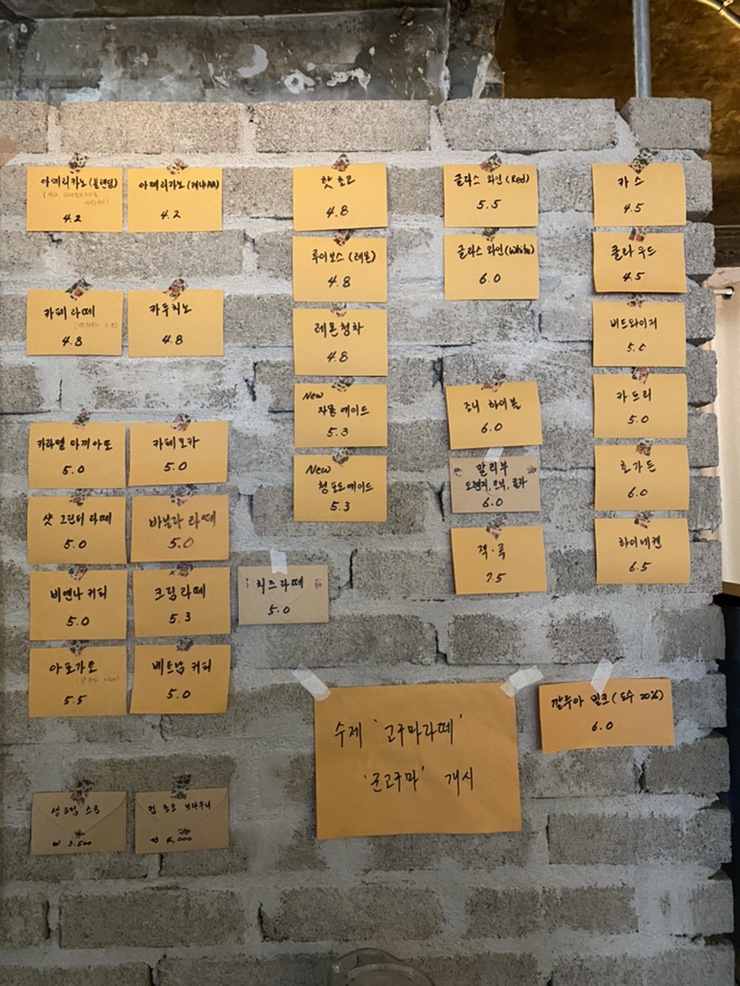 아메리카노 (블랜딩)
4.2
아메리카노 (케냐AA)
4.2
카페 라떼
4.8
카푸치노
4.8
카라멜 마끼아또
5.0
카페모카
5.0
샷 그린티 라떼
5.0
바닐라 라떼
5.0
비엔나 커피
5.0
크림 라떼
5.3
치즈 라떼
5.0
아포가토
5.5
베트남 커피
5.0
₩ 3.500
핫 초코
4.8
루이보스 (레몬)
4.8
레몬청차
4.8
New
자몽 에이드
5.3
New
청포도에이드
5.3
글라스 와인 (Red)
5.5
글라스 와인 (White)
6.0
조니 하이볼
6.0
말리부
오렌지, 우유, 콜라
6.0
잭·콕
7.5
카스
4.5
클라우드
4.5
버드와이저
5.0
카프리
5.0
호가든
6.0
하이네켄
6.5
수제 '고구마라떼'
'군고구마' 개시
깔루아 밀크 (도수 20%)
6.0